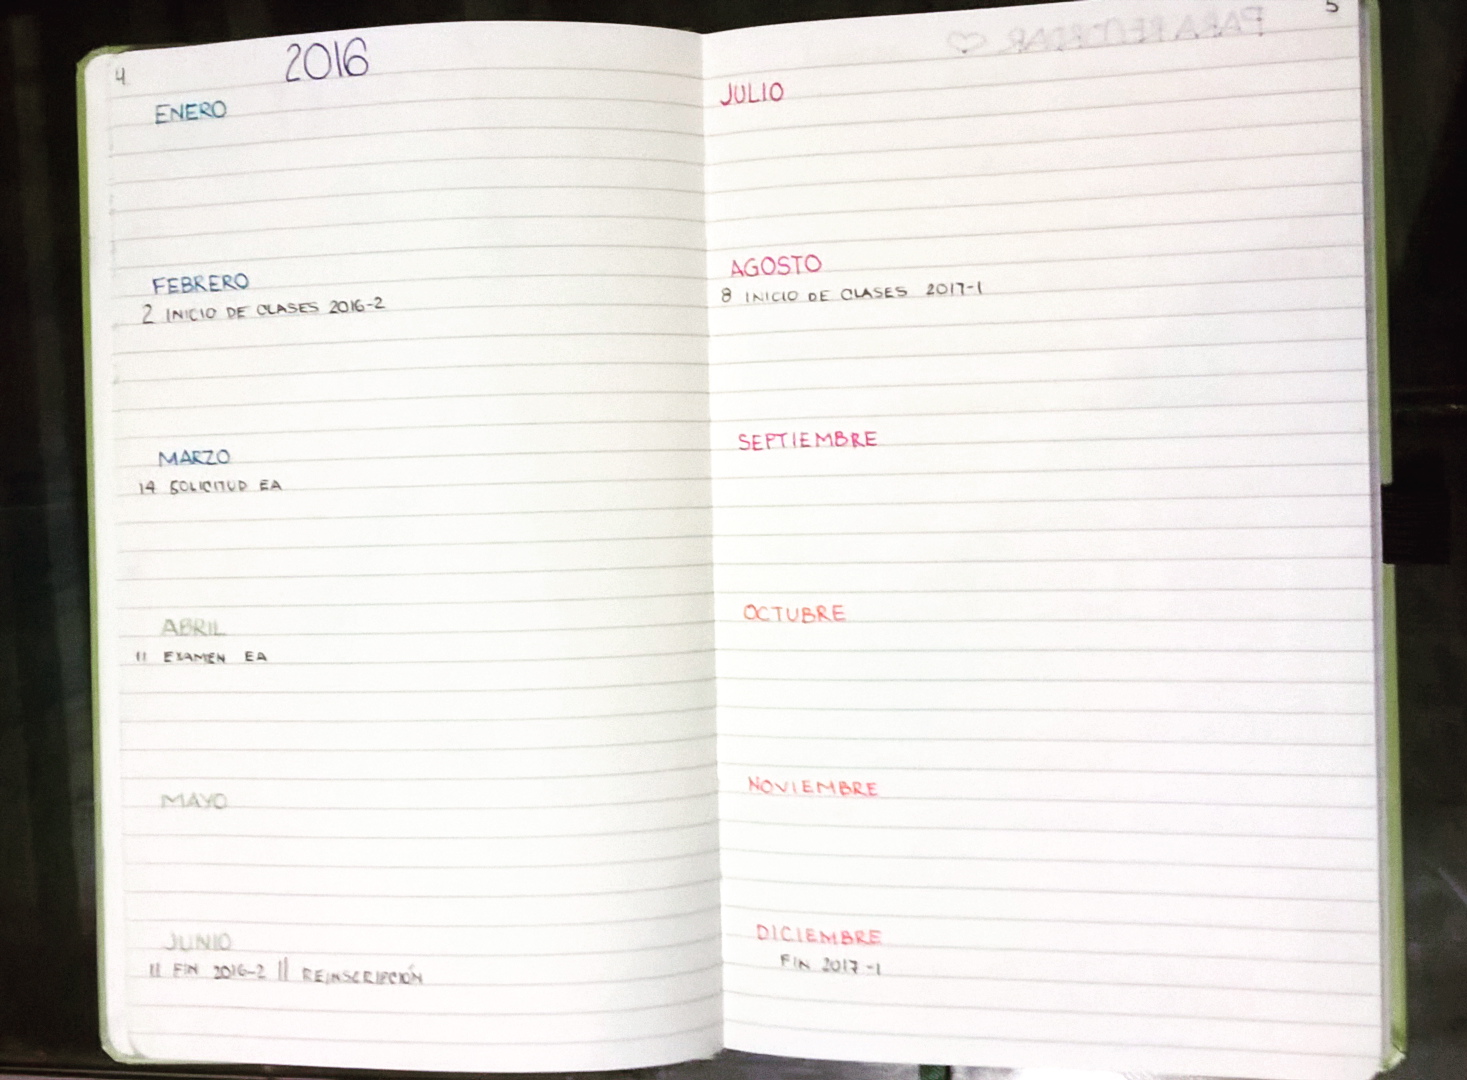 4
2016
ENERO
FEBRERO
2 INICIO DE CLASES 2016-2
MARZO
14 SOLICITUD EA
ABRIL
11 EXAMEN EA
MAYO
JUNIO
11 FIN 2016-2 || REINSCRIPCIÓN
5
JULIO
AGOSTO
8 INICIO DE CLASES 2017-1
SEPTIEMBRE
OCTUBRE
NOVIEMBRE
DICIEMBRE
FIN 2017-1